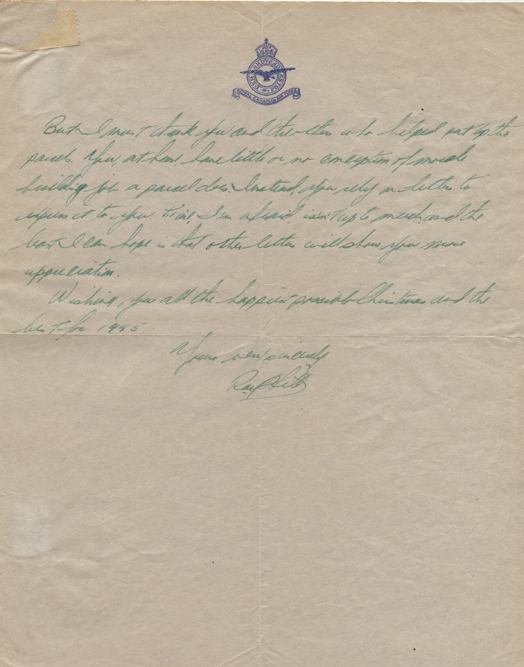 PER ARDUA AD ASTRA
ROYAL CANADIAN AIR FORCE
But I must thank you and the others who helped put up the
parcel. You, at home, have little or no conception of morale
building job a parcel does. Instead, you rely on letters to
express it to you. Mine I'm afraid isn't up to much and the
best I can hope is that other letters will show you more
appreciation.
Wishing you all the happiest possible Christmas and the
best for 1945
Yours very sincerely
Ray